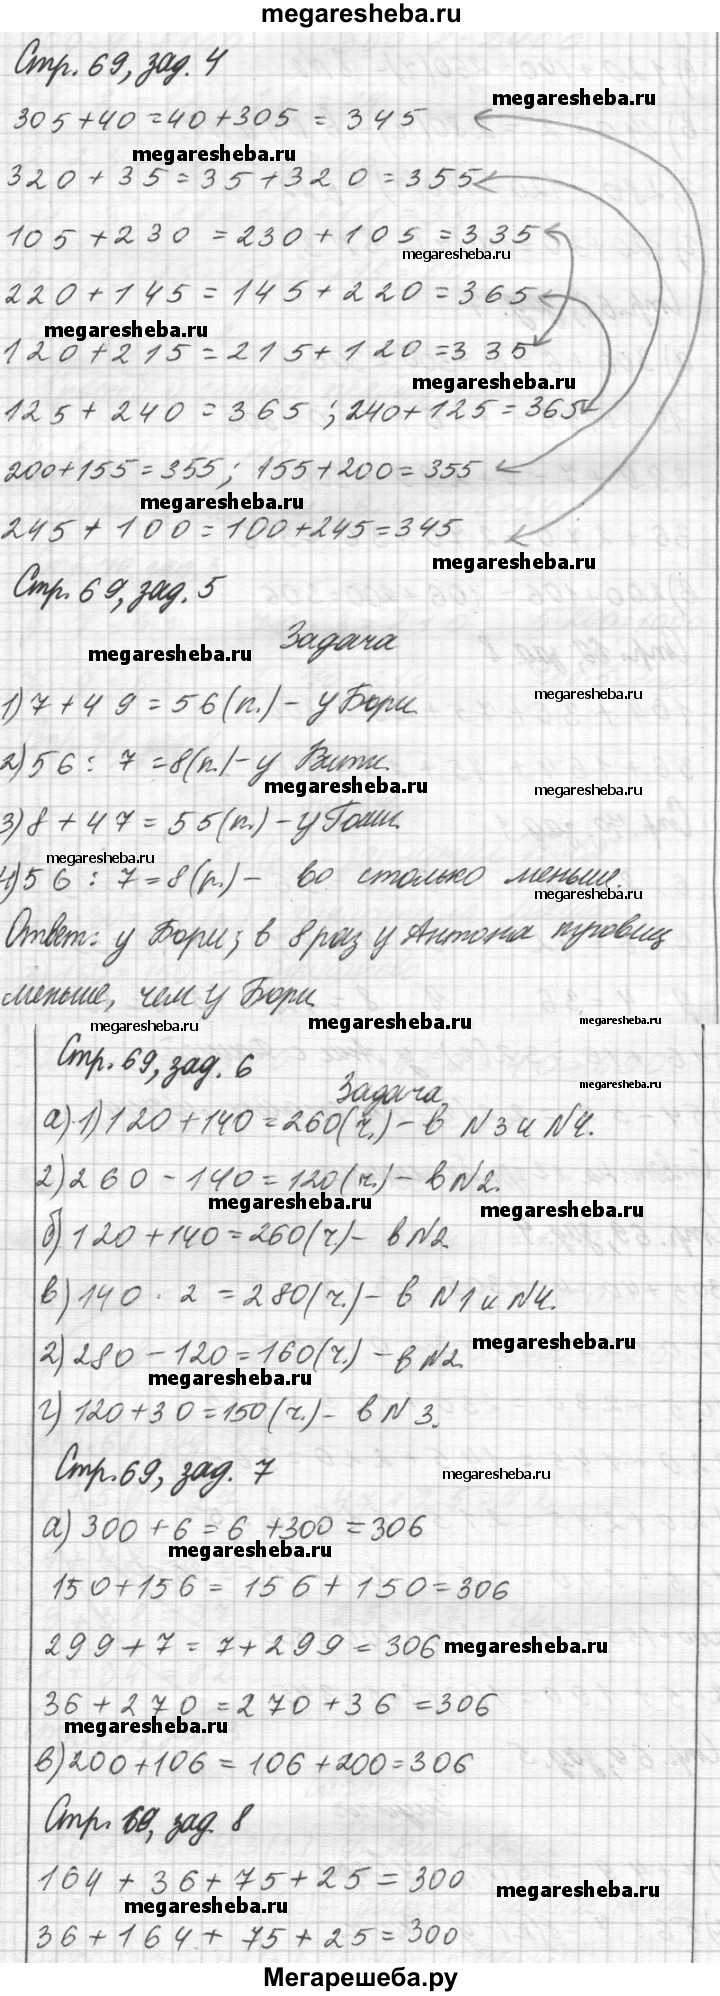 megaresheba.ru
Стр. 69, зад. 4
megaresheba.ru
305+40=40+305 = 345
megaresheba.ru
320+35=35+320=355
105+230=230+105=335
megaresheba.ru
220+145=145+220=365
megaresheba.ru
120+215=215+120=335
megaresheba.ru
125+240=365; 240+125=365
200+155=355; 155+200=355
megaresheba.ru
245+100=100+245=345
megaresheba.ru
Стр. 69, зад. 5
Задача
megaresheba.ru
megaresheba.ru
1) 7+49=56(п.) - у Бори.
2) 56:7=8(п.) - у Вити.
megaresheba.ru
megaresheba.ru
3) 8+47=55(п.) - у Гоши.
megaresheba.ru
4) 56:7=8(п.) - во столько меньше.
megaresheba.ru
Ответ: у Бори; в 8 раз у Антона пуговиц
меньше, чем у Бори
megaresheba.ru
megaresheba.ru
megaresheba.ru
Стр. 69, зад. 6
megaresheba.ru
Задача
а) 1) 120+140=260(ч.) - в N3 и N4.
2) 260-140=120(ч.) - в N2.
megaresheba.ru
megaresheba.ru
б) 120+140=260(ч.) - в N2
в) 140 · 2 = 280(ч.) - в N1 и N4.
megaresheba.ru
2) 280-120=160(ч.) - в N2.
megaresheba.ru
г) 120+30=150(ч.) - в N3.
Стр. 69, зад. 7
megaresheba.ru
а) 300+6=6+300=306
megaresheba.ru
150+156=156+150=306
299+7=7+299=306
megaresheba.ru
36+270=270+36=306
megaresheba.ru
в) 200+106=106+200=306
Стр. 69, зад. 8
164+36+75+25=300
megaresheba.ru
megaresheba.ru
36+164+75+25=300
Мегарешеба.ру